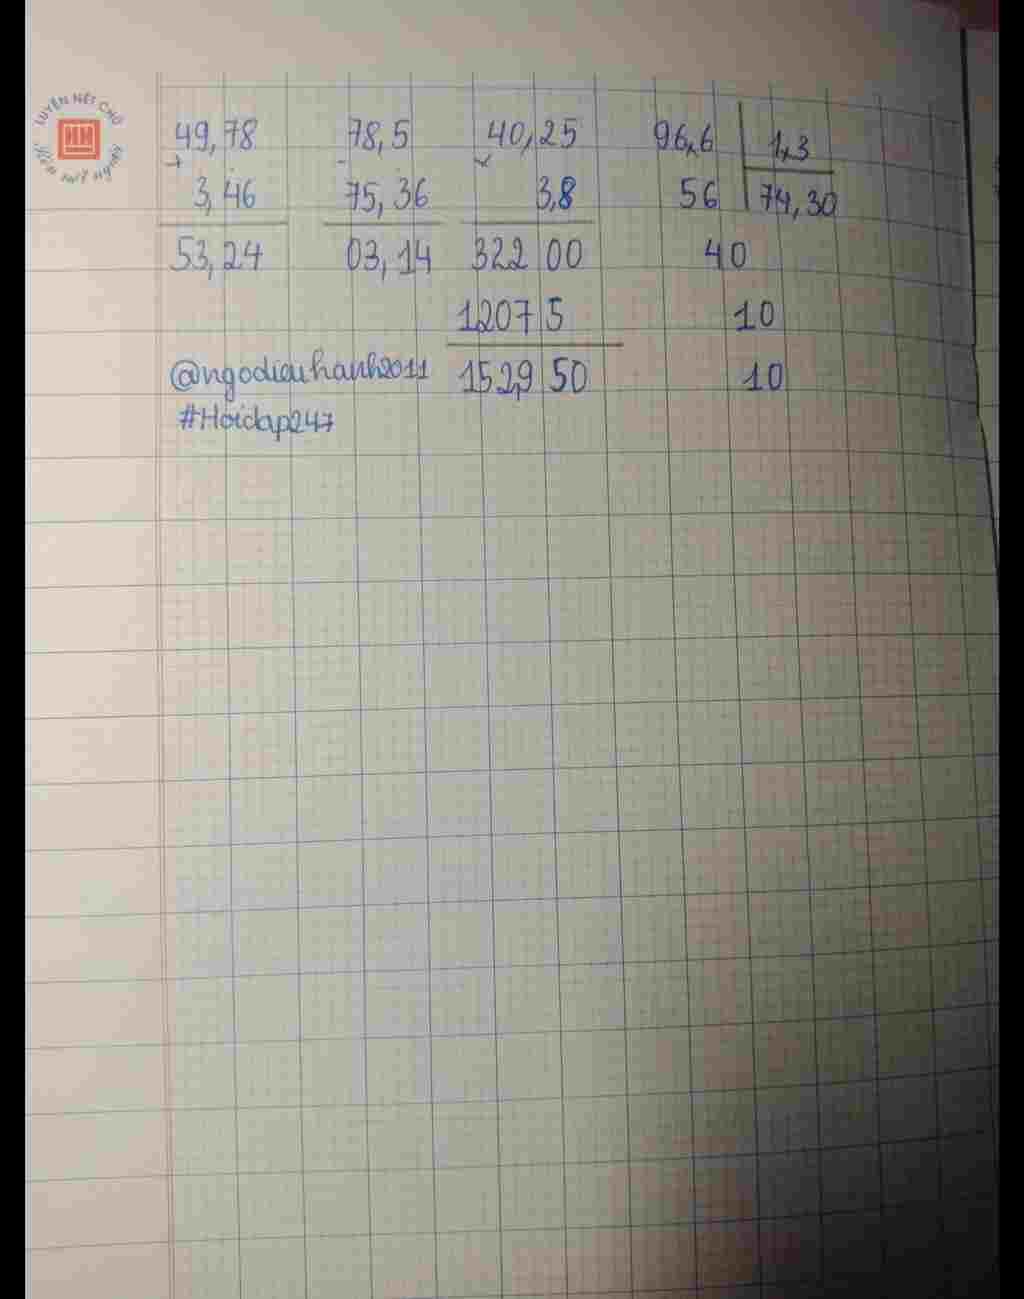 LUYỆN NÉT CHỮ
Rèn suy nghĩ
49,78 78,5 40,25 96,6 1,3
+ - ×
3,46 75,36 3,8 56 74,30
53,24 03,14 322 00 40
1207 5 10
@ngodieuhanh2011 152,9 50 10
#Hoidap247